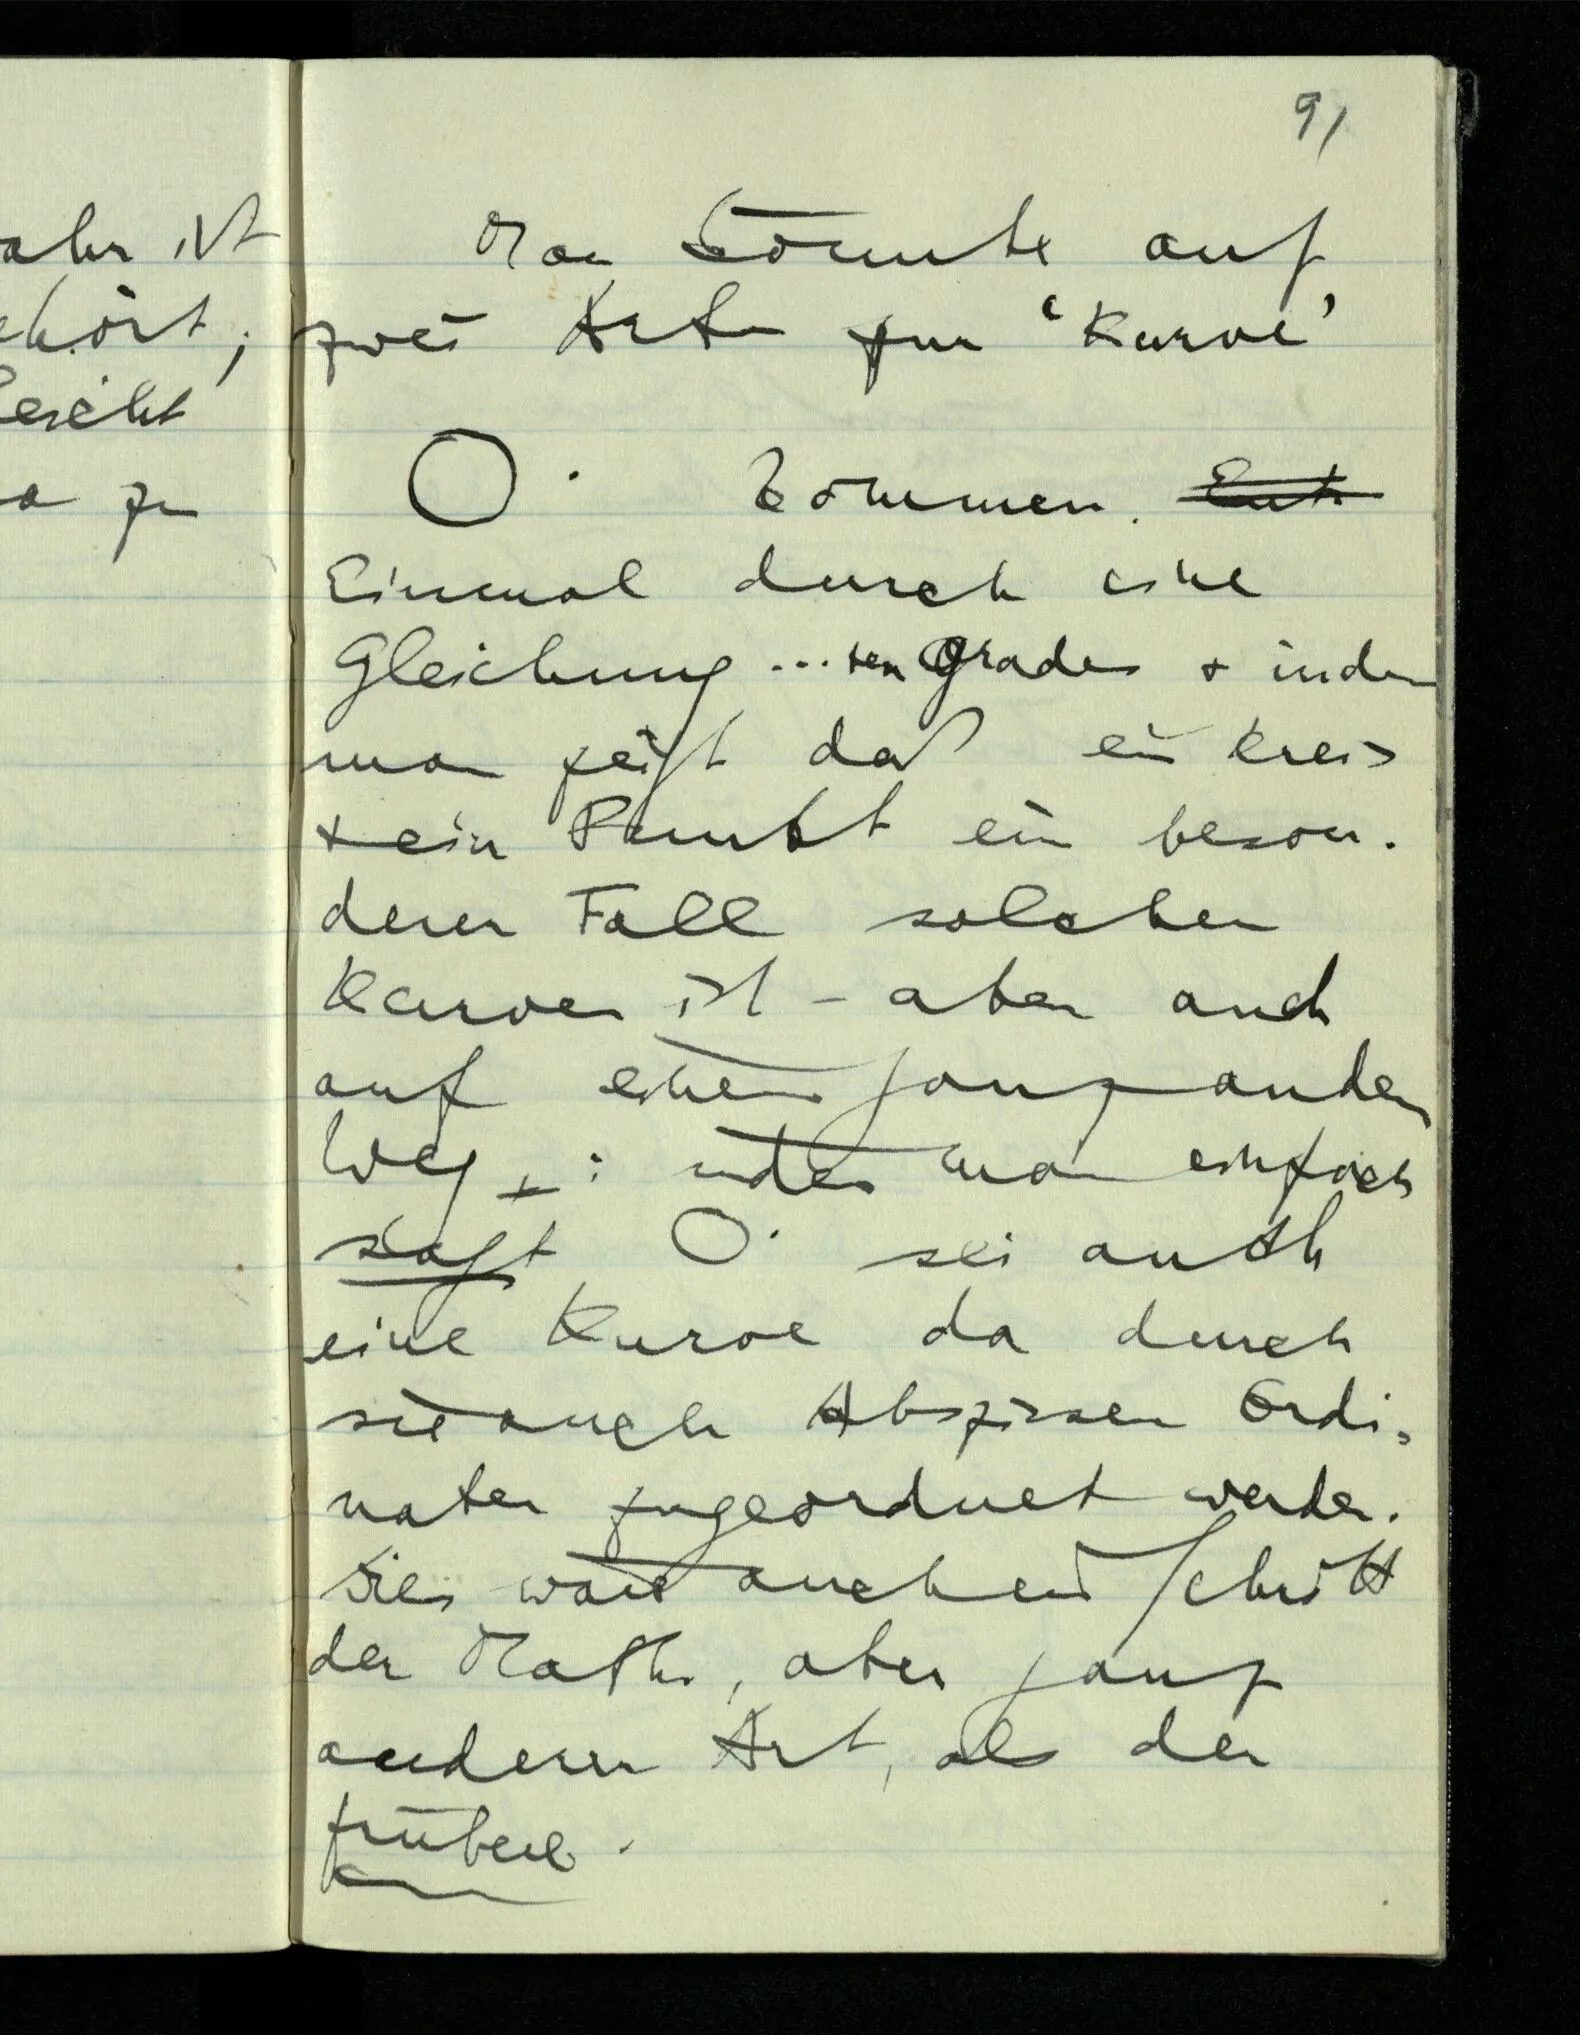 91
ahr ist
ehört;
leicht
a zu
Man könnte auf
zwei Arten zur 'Kurve'
○ · kommen. E̶i̶n̶t̶
Einmal durch eine
Gleichung ...ten Grades + indem
man zeigt daß ein Kreis
+ ein Punkt ein beson-
derer Fall solcher
Kurven ist – aber auch
auf einem ganz andern
Weg : indem man einfach
sagt ○· sei auch
eine Kurve da durch
sie auch Abszissen Ordi-
naten zugeordnet werden.
Dies wäre auch ein Schritt
der Math., aber ganz
anderer Art, als der
frühere.